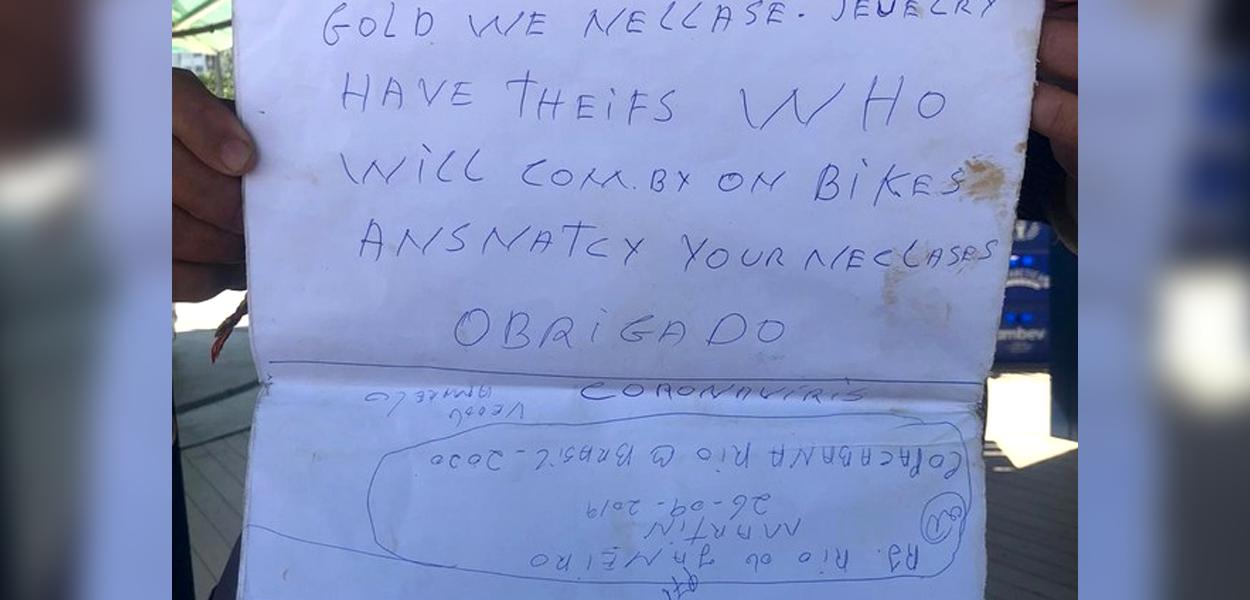 GOLD WE NELLASE. JEUELRY
HAVE THEIFS WHO
WILL COM.BY ON BIKES
ANSNATCY YOUR NECLASES
OBRIGADO
CORONAVIRIS
AMARELO
COPACABANA RIO BRASIL - 2020
26-09-2019
MARTIN
RJ. RIO do JANEIRO
ambev